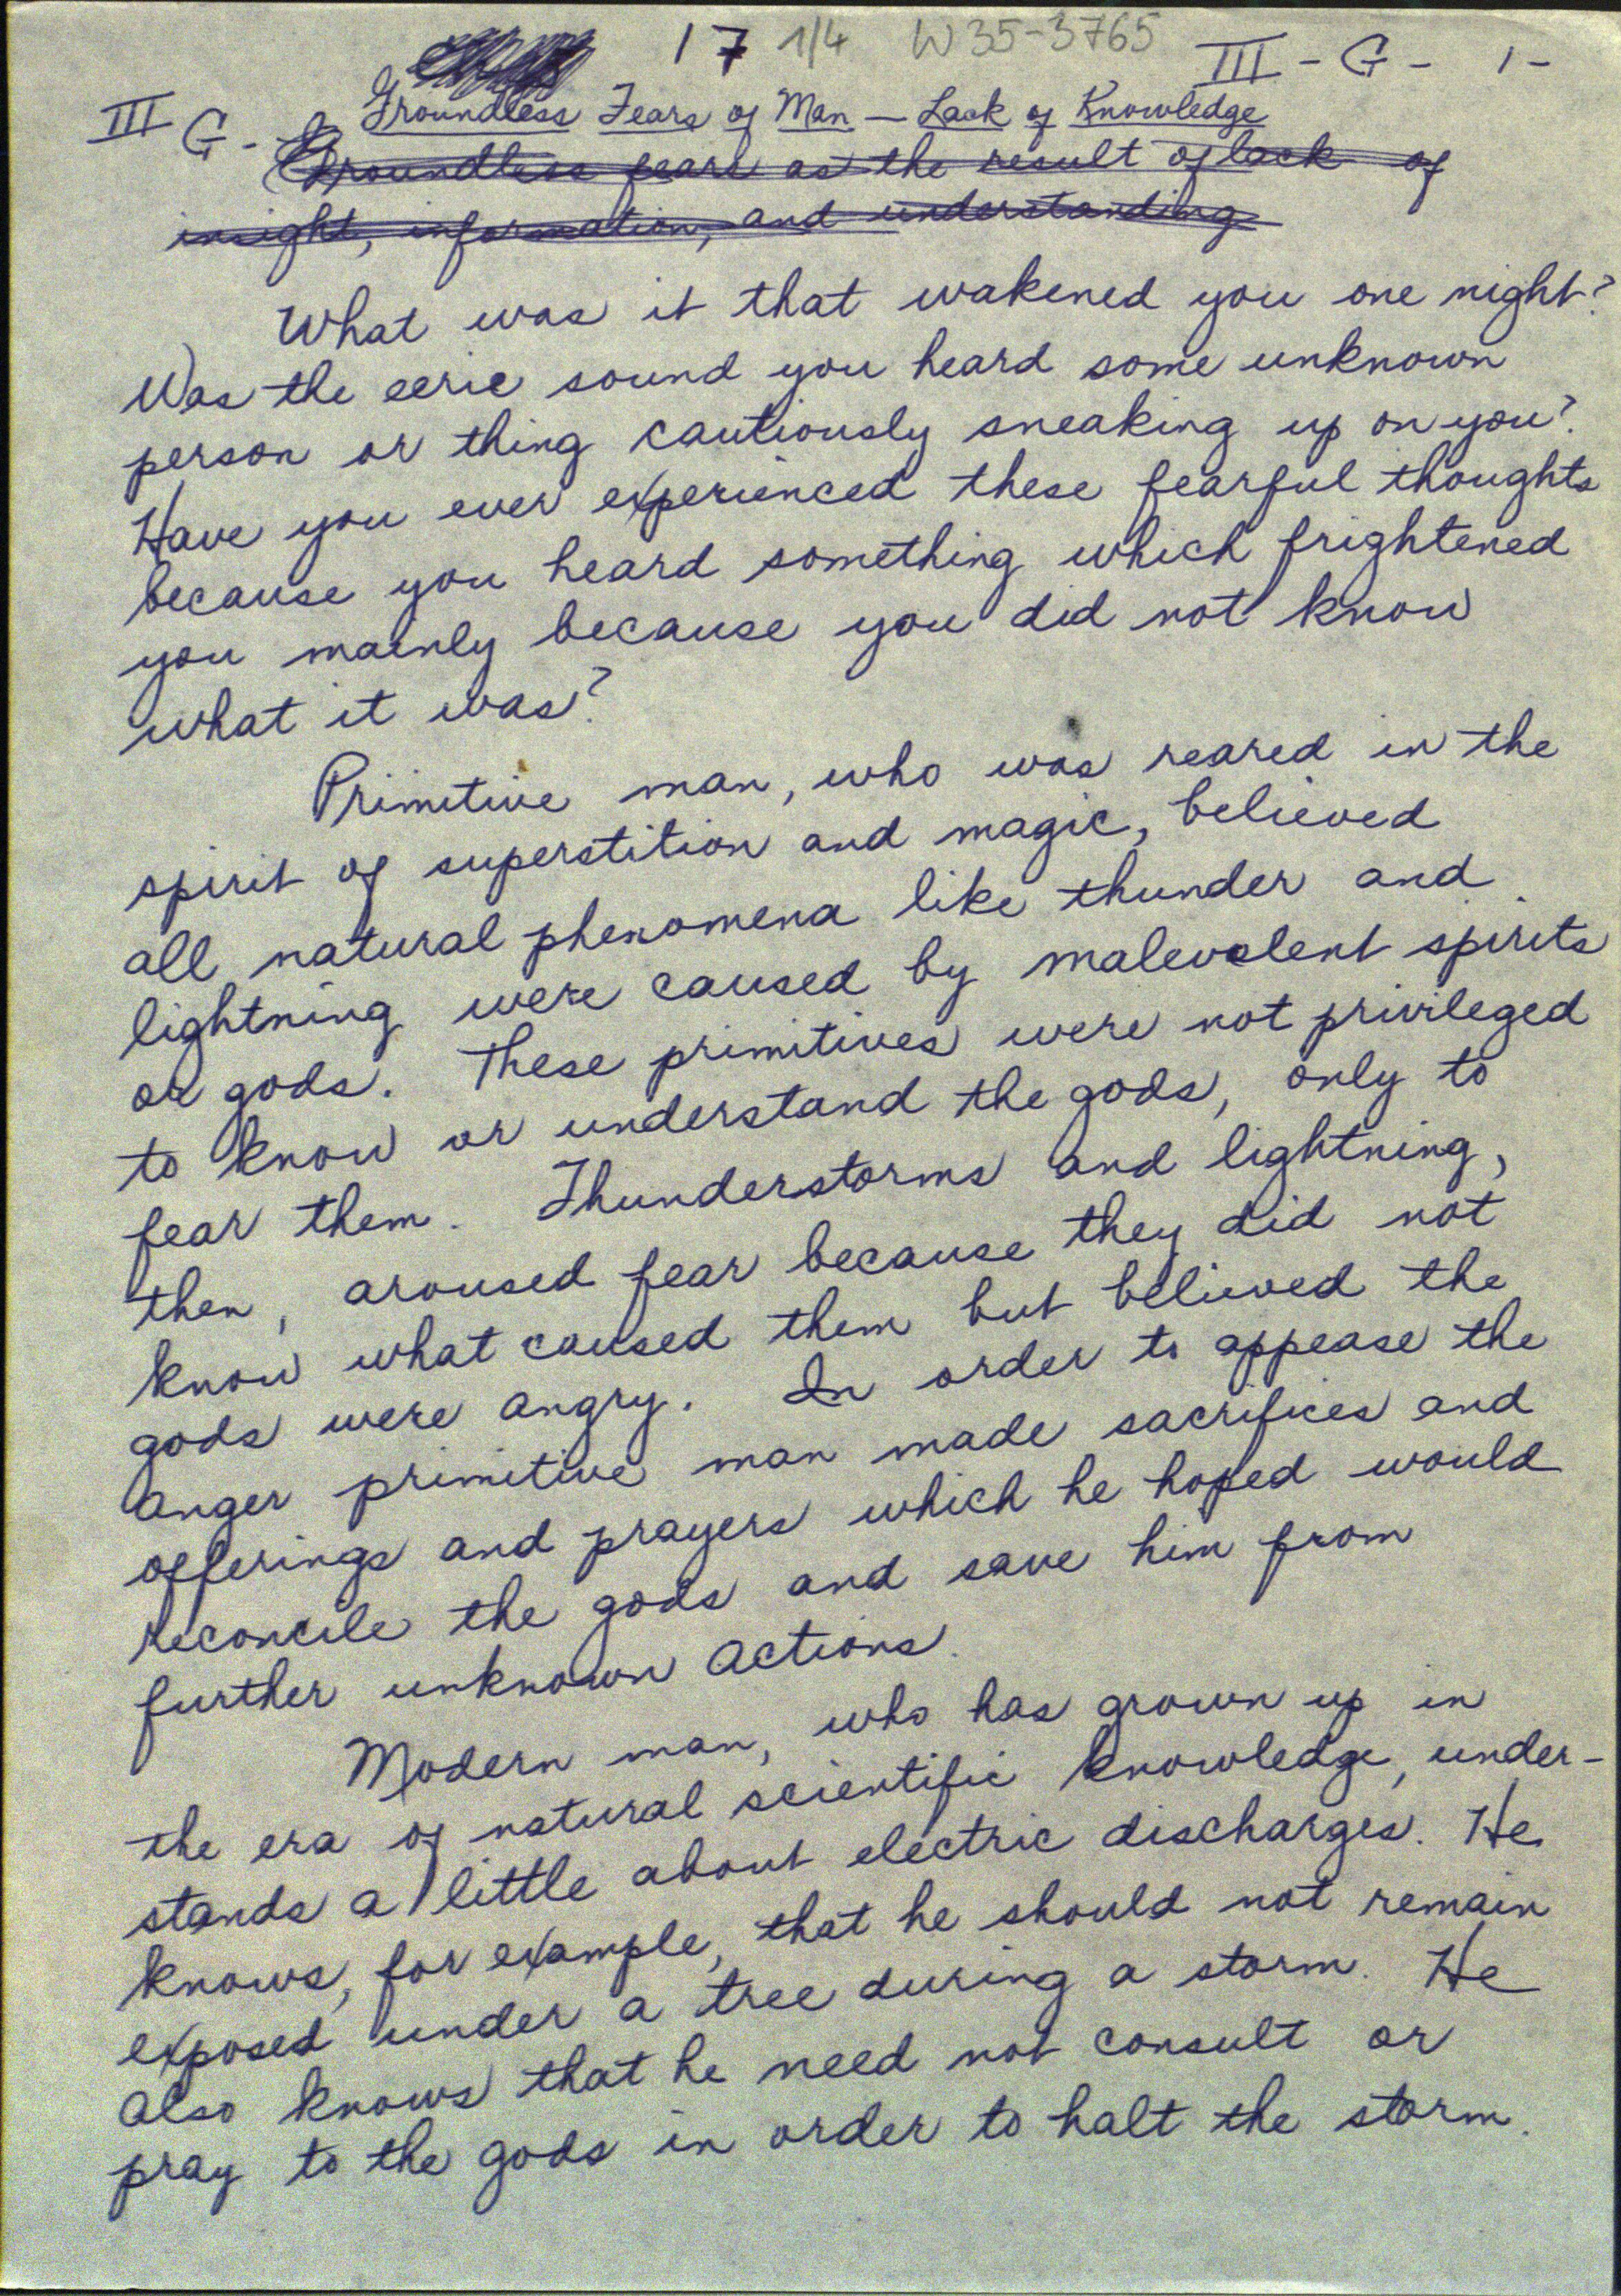 17 1/4 W35-3765 III-G-1-
III G- Groundless Fears of Man — Lack of Knowledge
Groundless fears as the result of lack of
insight, information, and understanding
What was it that wakened you one night?
Was the eerie sound you heard some unknown
person or thing cautiously sneaking up on you?
Have you ever experienced these fearful thoughts
because you heard something which frightened
you mainly because you did not know
what it was?
Primitive man, who was reared in the
spirit of superstition and magic, believed
all natural phenomena like thunder and
lightning were caused by malevolent spirits
or gods. These primitives were not privileged
to know or understand the gods, only to
fear them. Thunderstorms and lightning,
then, aroused fear because they did not
know what caused them but believed the
gods were angry. In order to appease the
anger primitive man made sacrifices and
offerings and prayers which he hoped would
reconcile the gods and save him from
further unknown actions.
Modern man, who has grown up in
the era of natural scientific knowledge, under-
stands a little about electric discharges. He
knows, for example, that he should not remain
exposed under a tree during a storm. He
also knows that he need not consult or
pray to the gods in order to halt the storm.